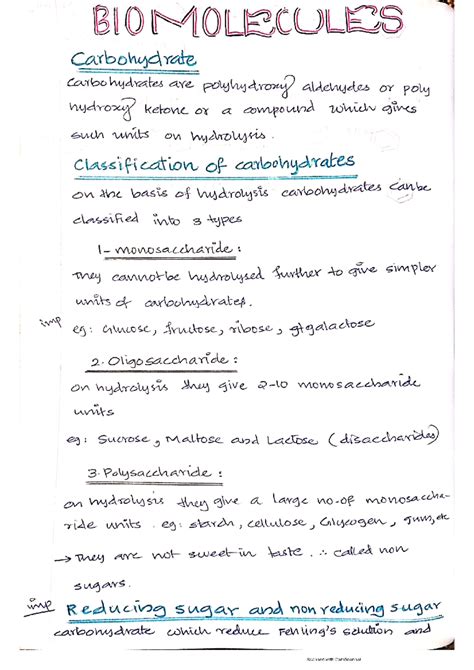 BIOMOLECULES
Carbohydrate
Carbohydrates are polyhydroxy aldehydes or poly
hydroxy ketone or a compound which gives
such units on hydrolysis.
Classification of carbohydrates
on the basis of hydrolysis carbohydrates can be
classified into 3 types
1- monosaccharide :
They cannot be hydrolysed further to give simpler
units of carbohydrates.
imp
eg: Glucose, fructose, ribose, galactose
2. Oligosaccharide :
on hydrolysis they give 2-10 monosaccharide
units
eg: Sucrose, Maltose and Lactose (disaccharides)
3. Polysaccharide :
on hydrolysis they give a large no. of monosaccha-
ride units. eg: starch, cellulose, Glycogen, gum, etc
→ They are not sweet in taste. ∴ called non
sugars.
imp Reducing sugar and non reducing sugar
carbohydrate which reduce Fehling's solution and